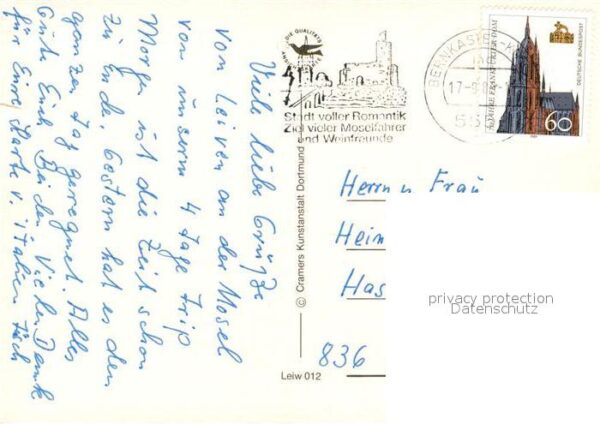 Viele liebe Grüße
von Leiven an der Mosel
von unserm 4 tage trip
Morgen ist die Zeit schon
zu Ende. Gestern hat es den
ganzen Tag geregnet. Alles
Gute Euch Beiden Vielen Dank
für Eure Karte v. Italien
DIE QUALITÄTS
Stadt voller Romantik
Ziel vieler Moselfahrer
und Weinfreunde
BERNKASTEL-K
17-9
DEUTSCHE BUNDESPOST
JAHRE FRANKFURTER DOM
60
© Cramers Kunstanstalt Dortmund
Leiw 012
Herrn u Frau
Heim
Has
836
privacy protection
Datenschutz